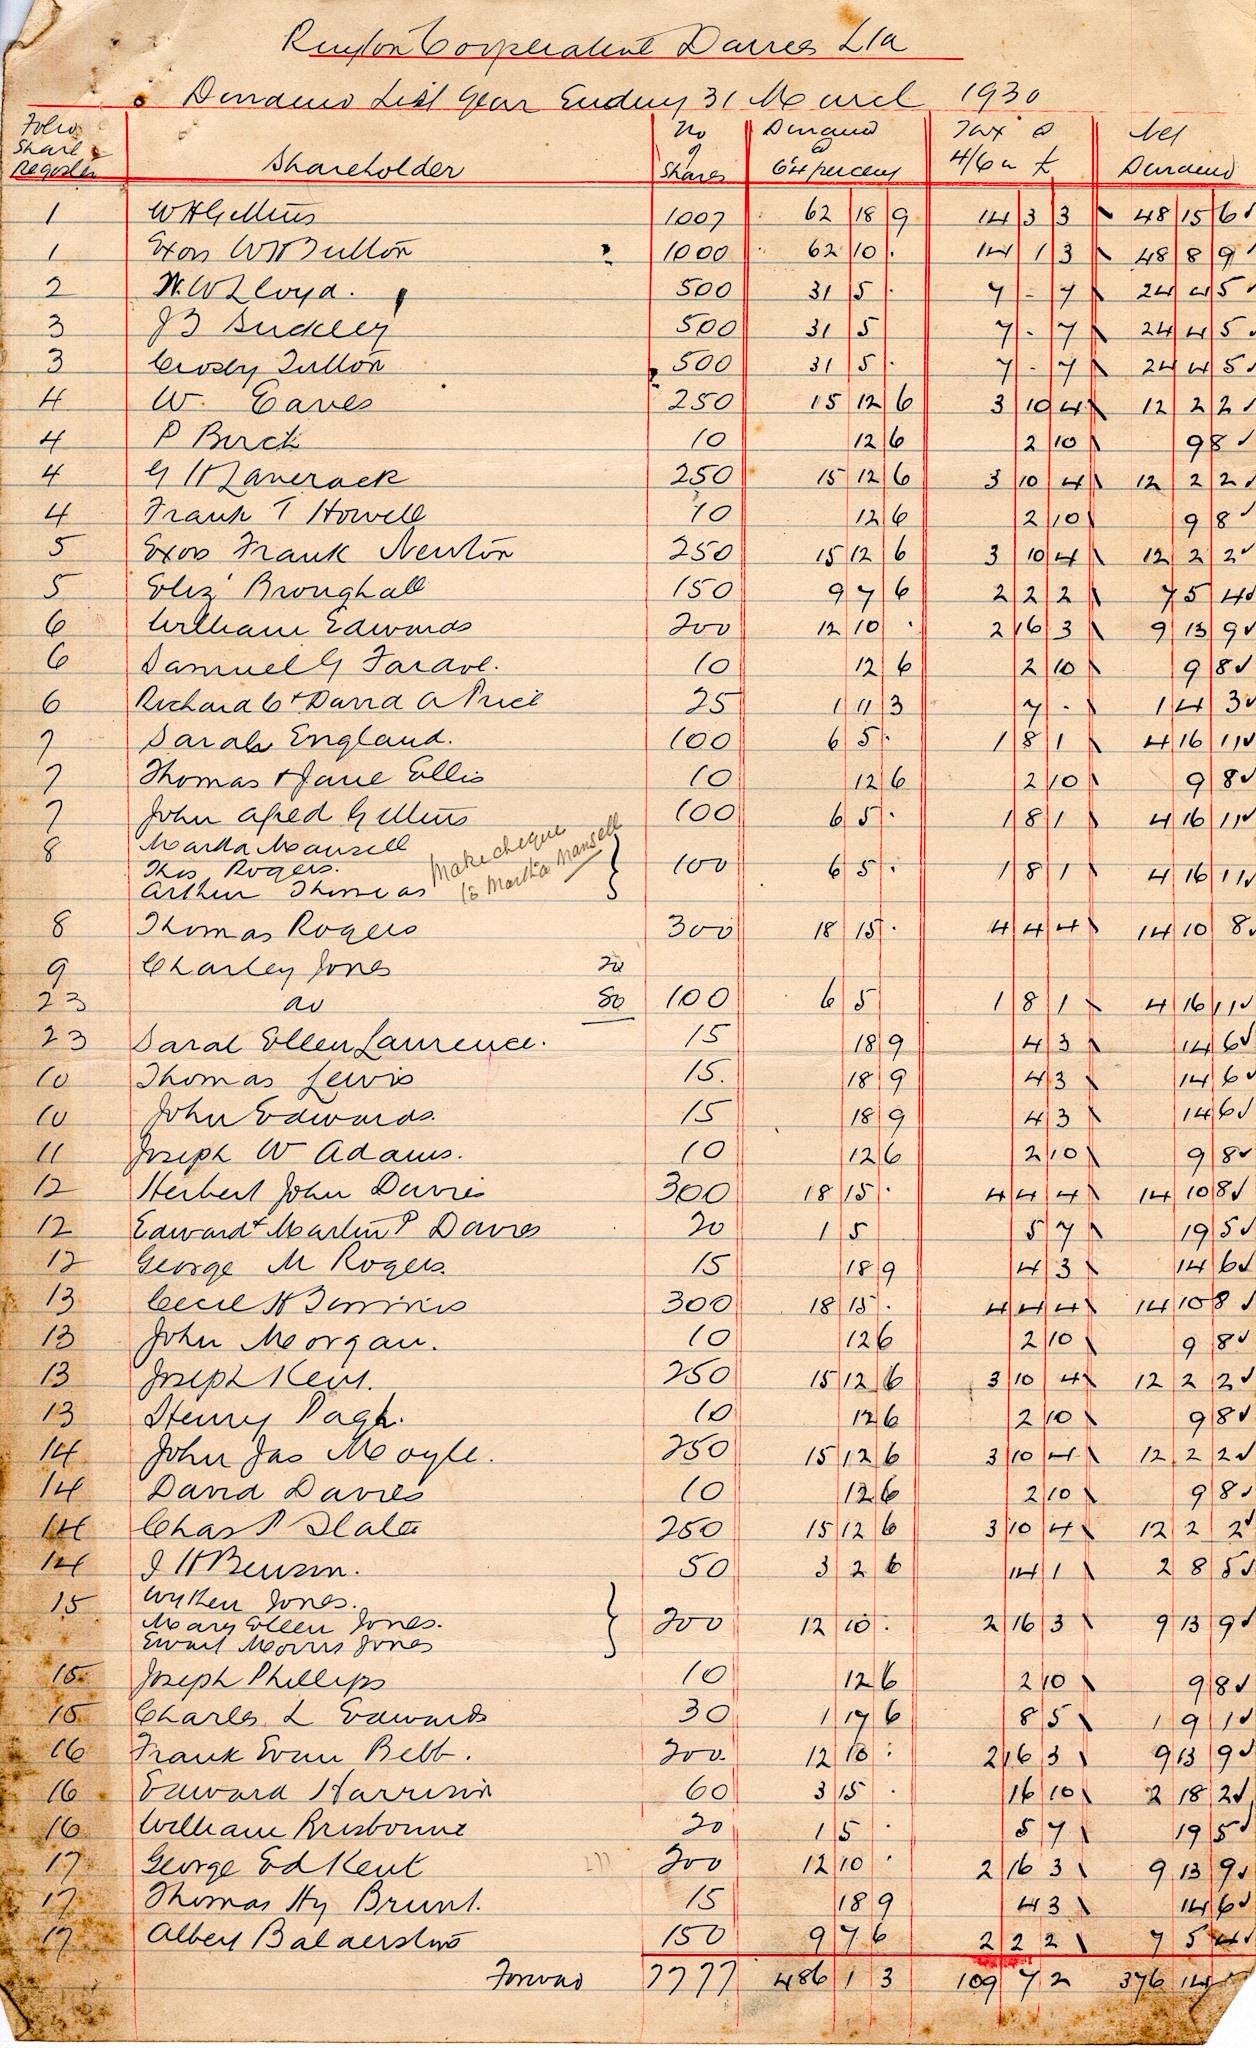 Ruyton Cooperative Dairies Ltd
Dividend List Year Ending 31 March 1930
Folio Share Register Shareholder No of Shares Dividend @ 6¼ percent Tax @ 4/6 in £ Net Dividend
1 W H Gittins 1007 62 18 9 14 3 3 48 15 6
1 Exors W H Sutton 1000 62 10 . 14 1 3 48 8 9
2 W. W Lloyd. 500 31 5 . 7 - 7 24 4 5
3 J B Buckley 500 31 5 7 - 7 24 4 5
3 Crosby Sutton 500 31 5 . 7 - 7 24 4 5
4 W. Eaves 250 15 12 6 3 10 4 12 2 2
4 P Burch 10 12 6 2 10 9 8
4 G H Laverack 250 15 12 6 3 10 4 12 2 2
4 Frank T Howell 10 12 6 2 10 9 8
5 Exors Frank Newton 250 15 12 6 3 10 4 12 2 2
5 Eliz' Broughall 150 9 7 6 2 2 2 7 5 4
6 William Edwards 200 12 10 . 2 16 3 9 13 9
6 Samuel G 10 12 6 2 10 9 8
6 Richard C + David A Price 25 1 11 3 7 - 1 4 3
7 Sarah England. 100 6 5 . 1 8 1 4 16 11
7 Thomas + Jane Ellis 10 12 6 2 10 9 8
7 John Alfred Gittins 100 6 5 . 1 8 1 4 16 11
8 Martha Mansell
Thos Rogers. Make cheque 100 6 5 . 1 8 1 4 16 11
Arthur Thomas to Martha Mansell
8 Thomas Rogers 300 18 15 . 4 4 4 14 10 8
9 Charley Jones 20
23 do 80 100 6 5 1 8 1 4 16 11
23 Sarah Ellen Lawrence. 15 18 9 4 3 14 6
10 Thomas Lewis 15. 18 9 4 3 14 6
10 John Edwards. 15 18 9 4 3 14 6
11 Joseph W Adams. 10 12 6 2 10 9 8
12 Herbert John Davies 300 18 15 . 4 4 4 14 10 8
12 Edward + Martin P Davies 20 1 5 5 7 19 5
12 George M Rogers. 15 18 9 4 3 14 6
13 Cecil H 300 18 15 . 4 4 4 14 10 8
13 John Morgan. 10 12 6 2 10 9 8
13 Joseph Kent. 250 15 12 6 3 10 4 12 2 2
13 Henry Pugh. 10 12 6 2 10 9 8
14 John Jas Moyle. 250 15 12 6 3 10 4 12 2 2
14 David Davies 10 12 6 2 10 9 8
14 Chas P Slater 250 15 12 6 3 10 4 12 2 2
14 J H Benson. 50 3 2 6 14 1 2 8 5
15 Jones.
Mary Ellen Jones. 200 12 10 . 2 16 3 9 13 9
Ewart Morris Jones
15 Joseph Phillips 10 12 6 2 10 9 8
15 Charles L Edwards 30 1 17 6 8 5 1 9 1
16 Frank Evan Bebb. 200. 12 10 . 2 16 3 9 13 9
16 Edward Harrison 60 3 15 . 16 10 2 18 2
16 William Brisbourne 20 1 5 . 5 7 19 5
17 George Ed Kent 200 12 10 . 2 16 3 9 13 9
17 Thomas Hy Brunt. 15 18 9 4 3 14 6
17 Albert Balderston 150 9 7 6 2 2 2 7 5 4
Forward 7777 486 1 3 109 7 2 376 14